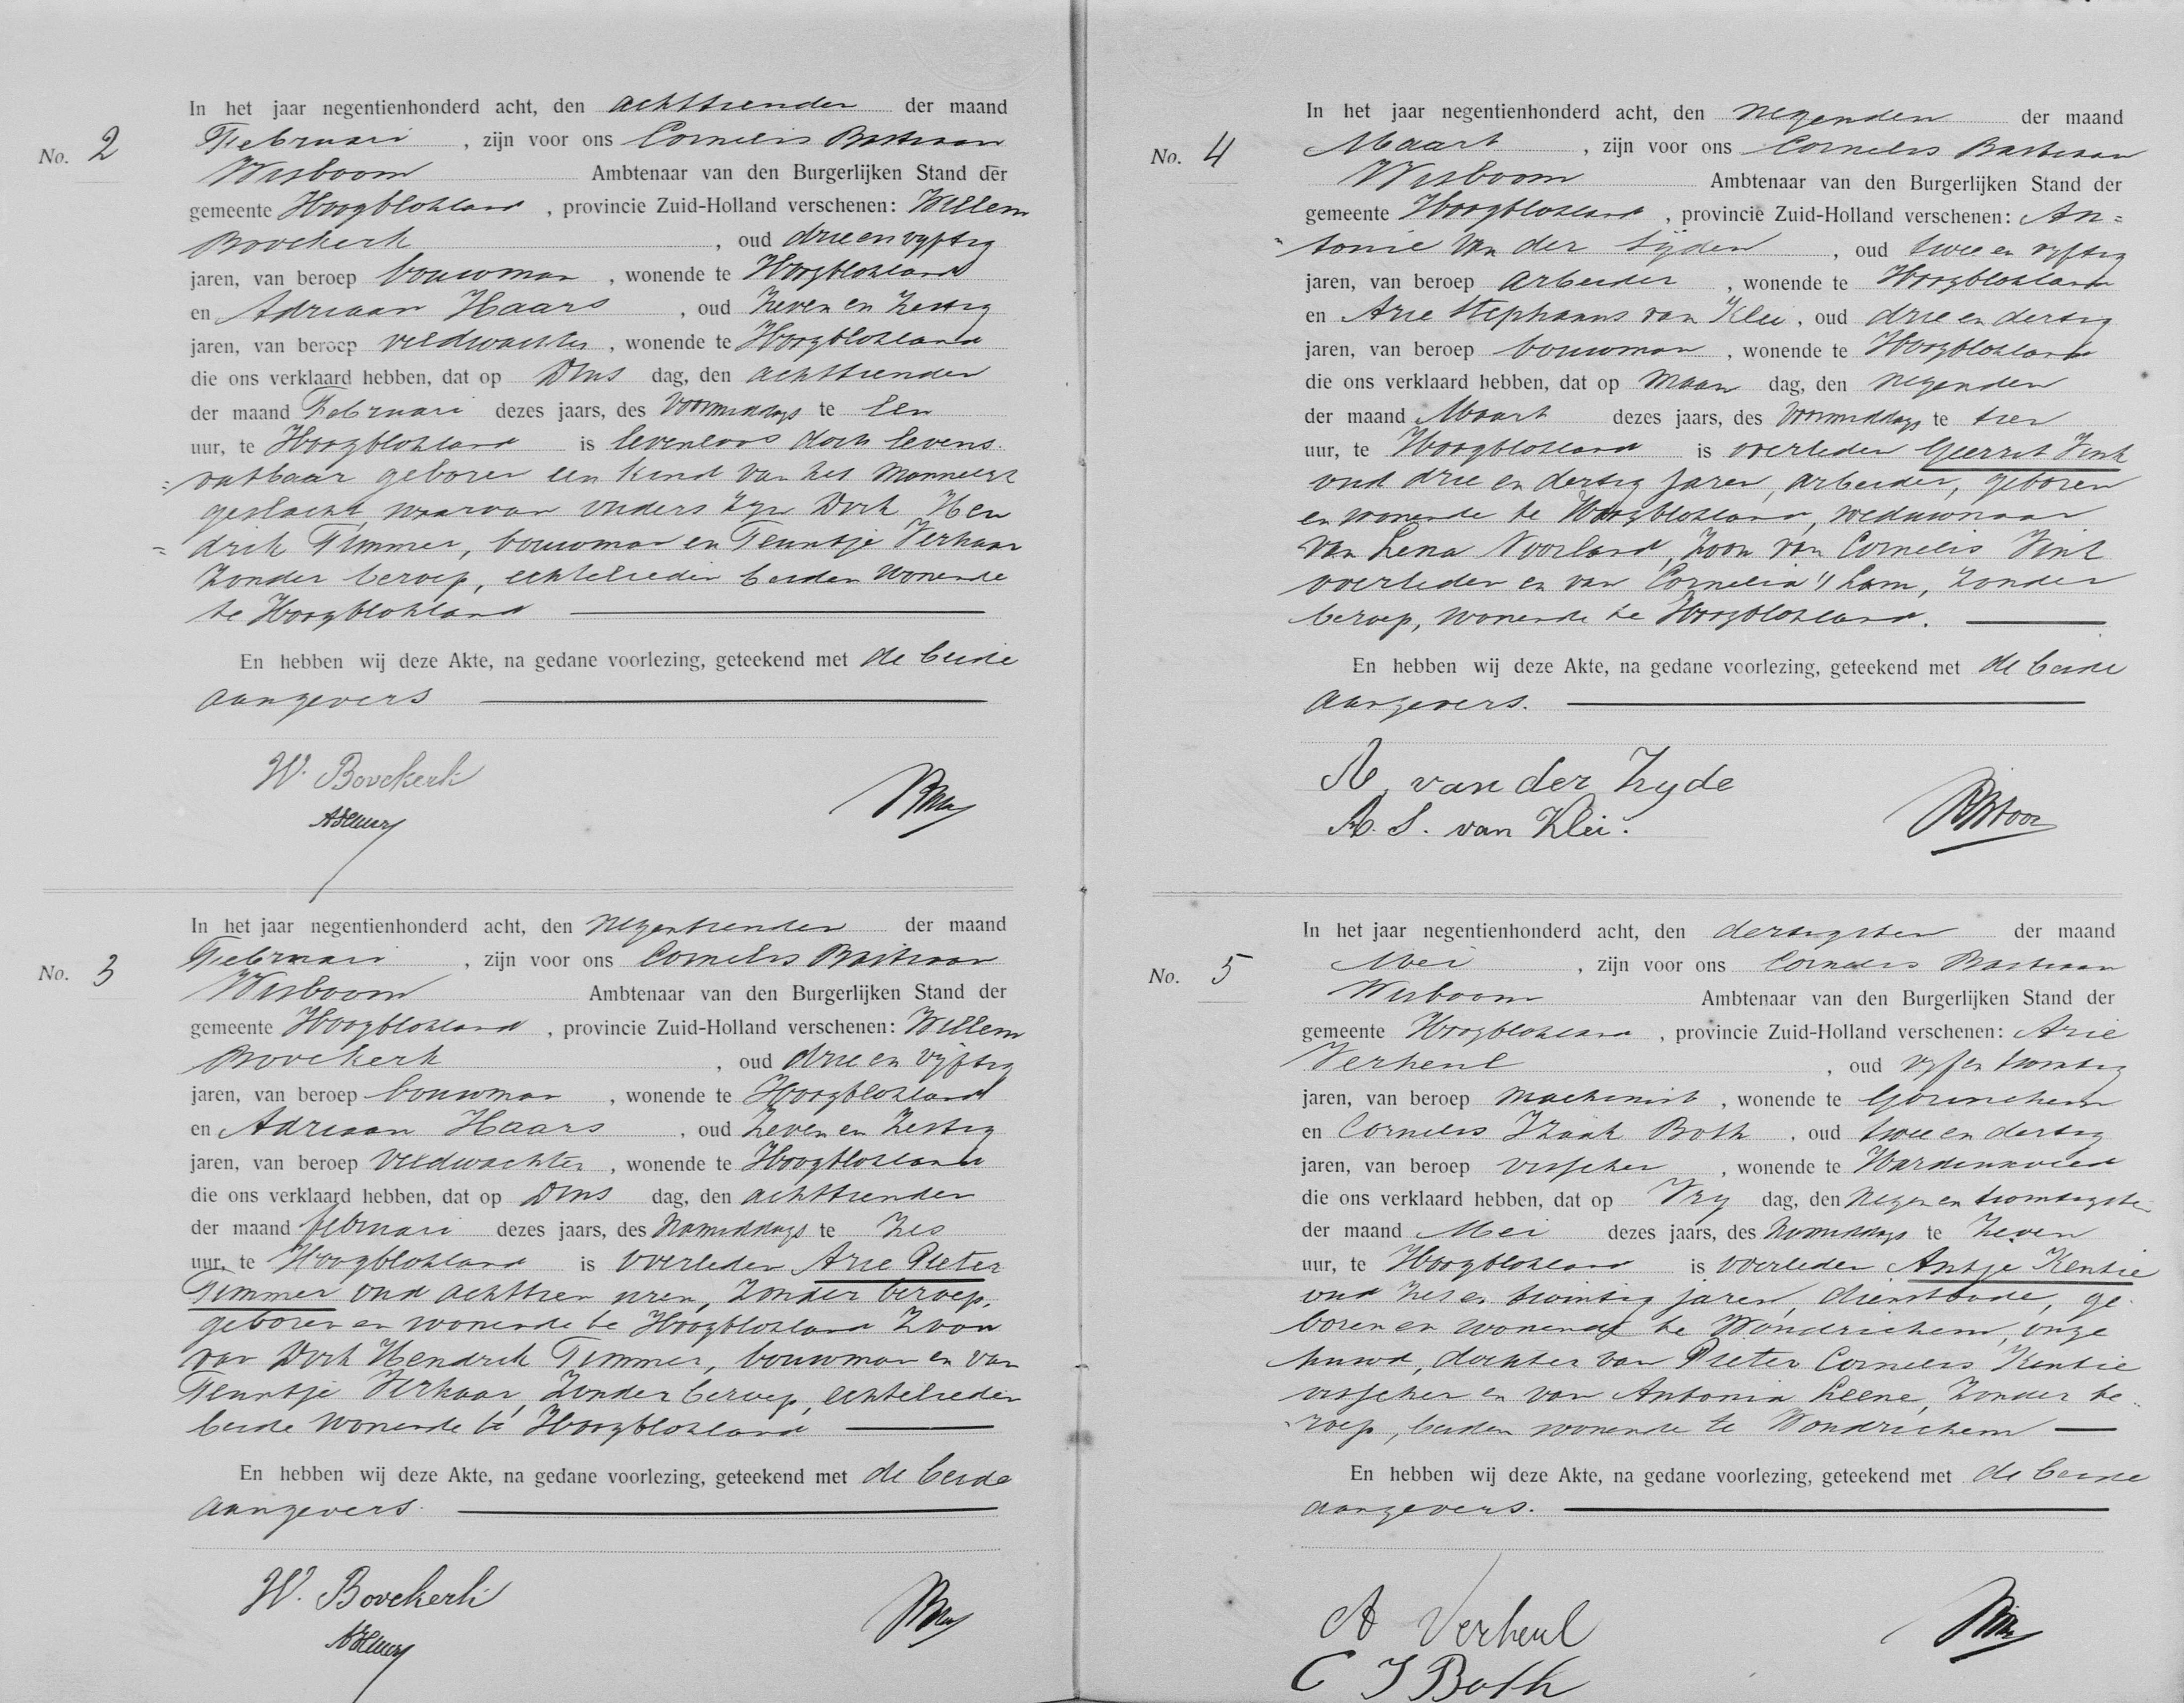 No. 2
In het jaar negentienhonderd acht, den achttienden der maand
Februari, zijn voor ons Cornelis Bastiaan
Wisboom Ambtenaar van den Burgerlijken Stand der
gemeente Hoogblokland, provincie Zuid-Holland verschenen: Willem
Bovekerk, oud drie en vyftig
jaren, van beroep bouwman, wonende te Hoogblokland
en Adriaan Haars, oud zeven en zestig
jaren, van beroep veldwachter, wonende te Hoogblokland
die ons verklaard hebben, dat op Dins dag, den achttienden
der maand Februari dezes jaars, des voormiddags te een
uur, te Hoogblokland is levenloos doch levens
=vatbaar geboren een kind van het mannelyk
geslacht, waarvan ouders zyn Dirk Hen
=drik Timmer, bouwman en Teuntje Verhaar
zonder beroep, echtelieden beiden wonende
te Hoogblokland
En hebben wij deze Akte, na gedane voorlezing, geteekend met de beide
aangevers
W. Bovekerk
No. 3
In het jaar negentienhonderd acht, den negentienden der maand
Februari, zijn voor ons Cornelis Bastiaan
Wisboom Ambtenaar van den Burgerlijken Stand der
gemeente Hoogblokland, provincie Zuid-Holland verschenen: Willem
Bovekerk, oud drie en vyftig
jaren, van beroep bouwman, wonende te Hoogblokland
en Adriaan Haars, oud zeven en zestig
jaren, van beroep veldwachter, wonende te Hoogblokland
die ons verklaard hebben, dat op Dins dag, den achttienden
der maand februari dezes jaars, des namiddags te zes
uur, te Hoogblokland is overleden Arie Pieter
Timmer oud achttien uren, zonder beroep,
geboren en wonende te Hoogblokland zoon
van Dirk Hendrik Timmer, bouwman en van
Teuntje Verhaar, zonder beroep, echtelieden
beide wonende te Hoogblokland
En hebben wij deze Akte, na gedane voorlezing, geteekend met de beide
aangevers.
W. Bovekerk
No. 4
In het jaar negentienhonderd acht, den negenden der maand
Maart, zijn voor ons Cornelis Bastiaan
Wisboom Ambtenaar van den Burgerlijken Stand der
gemeente Hoogblokland, provincie Zuid-Holland verschenen: An=
=tonie van der Zijden, oud twee en vyftig
jaren, van beroep arbeider, wonende te Hoogblokland
en Arie Stephanus van Klei, oud drie en dertig
jaren, van beroep bouwman, wonende te Hoogblokland
die ons verklaard hebben, dat op Maan dag, den negenden
der maand Maart dezes jaars, des voormiddags te tien
uur, te Hoogblokland is overleden Gerrit Vink
oud drie en dertig jaren, arbeider, geboren
en wonende te Hoogblokland, weduwnaar
van Lena Noorland, zoon van Cornelis Vink
overleden en van Cornelia 't Lam, zonder
beroep, wonende te Hoogblokland.
En hebben wij deze Akte, na gedane voorlezing, geteekend met de beide
aangevers.
A. van der Zyde
A. S. van Klei.
No. 5
In het jaar negentienhonderd acht, den dertigsten der maand
Mei, zijn voor ons Cornelis Bastiaan
Wisboom Ambtenaar van den Burgerlijken Stand der
gemeente Hoogblokland, provincie Zuid-Holland verschenen: Arie
Verheul, oud vyf en twintig
jaren, van beroep machinist, wonende te Gorinchem
en Cornelis Izaak Both, oud twee en dertig
jaren, van beroep visscher, wonende te Hardinxveld
die ons verklaard hebben, dat op Vry dag, den negen en twintigsten
der maand Mei dezes jaars, des namiddags te zeven
uur, te Hoogblokland is overleden Antje Kentie
oud zes en twintig jaren, dienstbode, ge
boren en wonende te Woudrichem, onge
huwd, dochter van Pieter Cornelis Kentie
visscher en van Antonia Leene, zonder be
roep, beiden wonende te Woudrichem
En hebben wij deze Akte, na gedane voorlezing, geteekend met de beide
aangevers.
A Verheul
C I Both